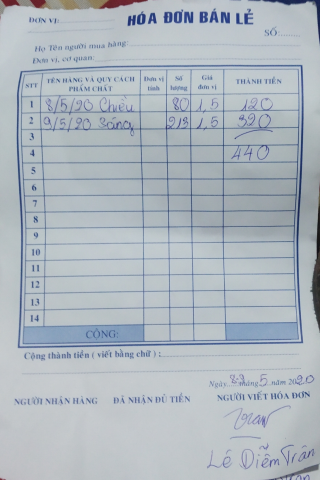 ĐƠN VỊ: HÓA ĐƠN BÁN LẺ
SỐ
Họ Tên người mua hàng:
Đơn vị, cơ quan:
STT TÊN HÀNG VÀ QUY CÁCH PHẨM CHẤT Đơn vị tính Số lượng Giá đơn vị THÀNH TIỀN
1 8/5/20 Chiều 80 1,5 120
2 9/5/20 Sáng 213 1,5 320
3
4 440
5
6
7
8
9
10
11
12
13
14
CỘNG:
Cộng thành tiền ( viết bằng chữ ) :
Ngày tháng 5 năm 2020
NGƯỜI NHẬN HÀNG ĐÃ NHẬN ĐỦ TIỀN NGƯỜI VIẾT HÓA ĐƠN
Lê Diễm Trân